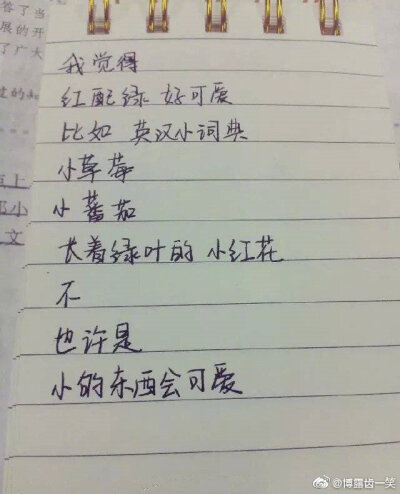 答了当
展的开
了广大
我觉得
红配绿 好可爱
比如 英汉小词典
小草莓
小蕃茄
长着绿叶的 小红花
不
也许是
小的东西会可爱
@博露齿一笑